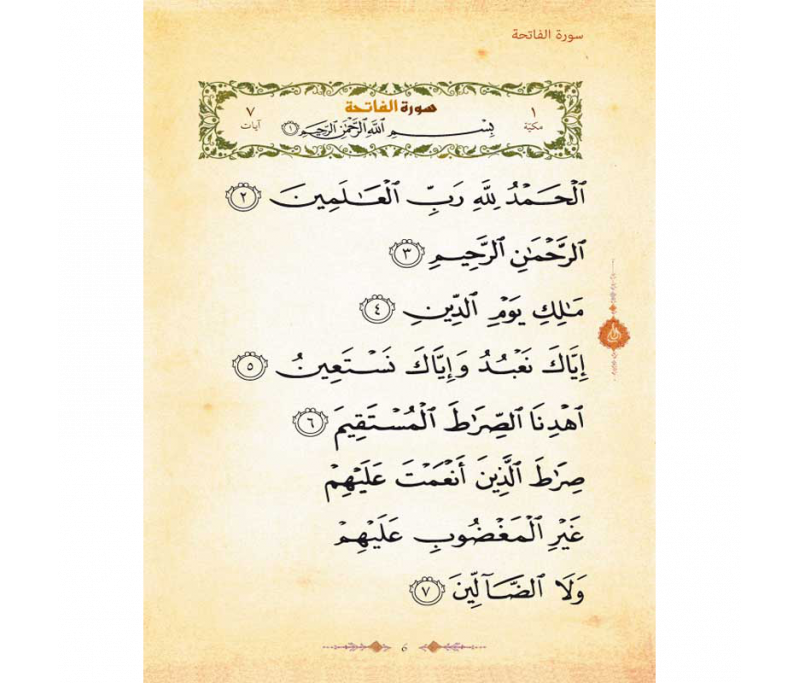 سورة الفاتحة
١ سورة الفاتحة ٧
مكية بِسْمِ ٱللَّهِ ٱلرَّحْمَٰنِ ٱلرَّحِيمِ ١ آيات
ٱلْحَمْدُ لِلَّهِ رَبِّ ٱلْعَٰلَمِينَ ٢
ٱلرَّحْمَٰنِ ٱلرَّحِيمِ ٣
مَٰلِكِ يَوْمِ ٱلدِّينِ ٤
إِيَّاكَ نَعْبُدُ وَإِيَّاكَ نَسْتَعِينُ ٥
ٱهْدِنَا ٱلصِّرَٰطَ ٱلْمُسْتَقِيمَ ٦
صِرَٰطَ ٱلَّذِينَ أَنْعَمْتَ عَلَيْهِمْ
غَيْرِ ٱلْمَغْضُوبِ عَلَيْهِمْ
وَلَا ٱلضَّآلِّينَ ٧
6